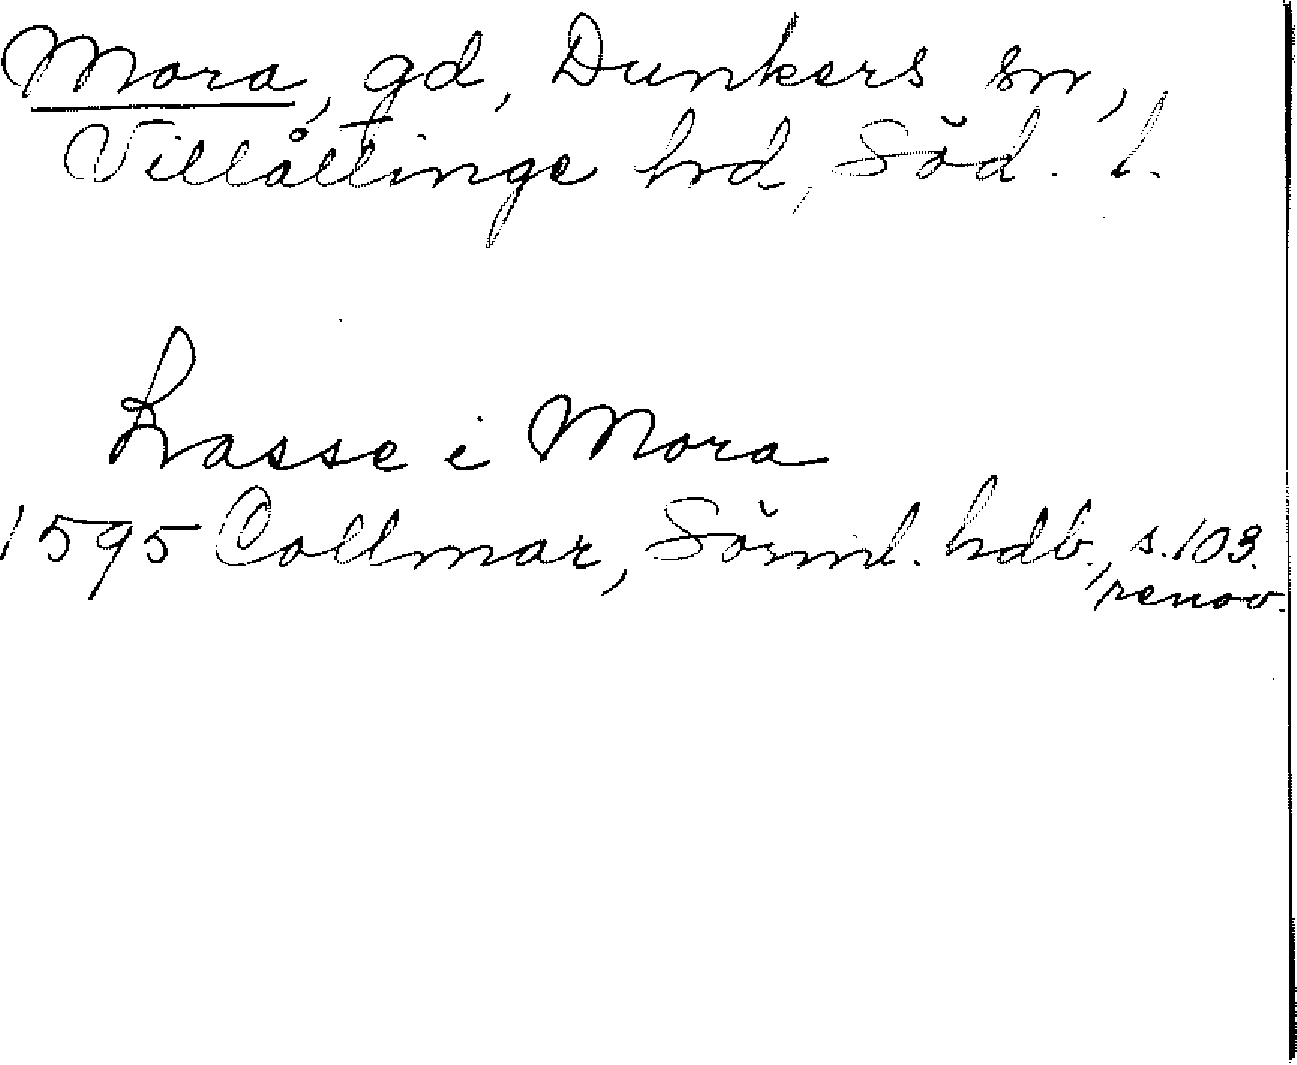 Mora, gd, Dunkers sn,
Villåttinge hrd, Söd. l.
Lasse i Mora
1595 Collmar, Sörml. hdb., s. 103.
renov.